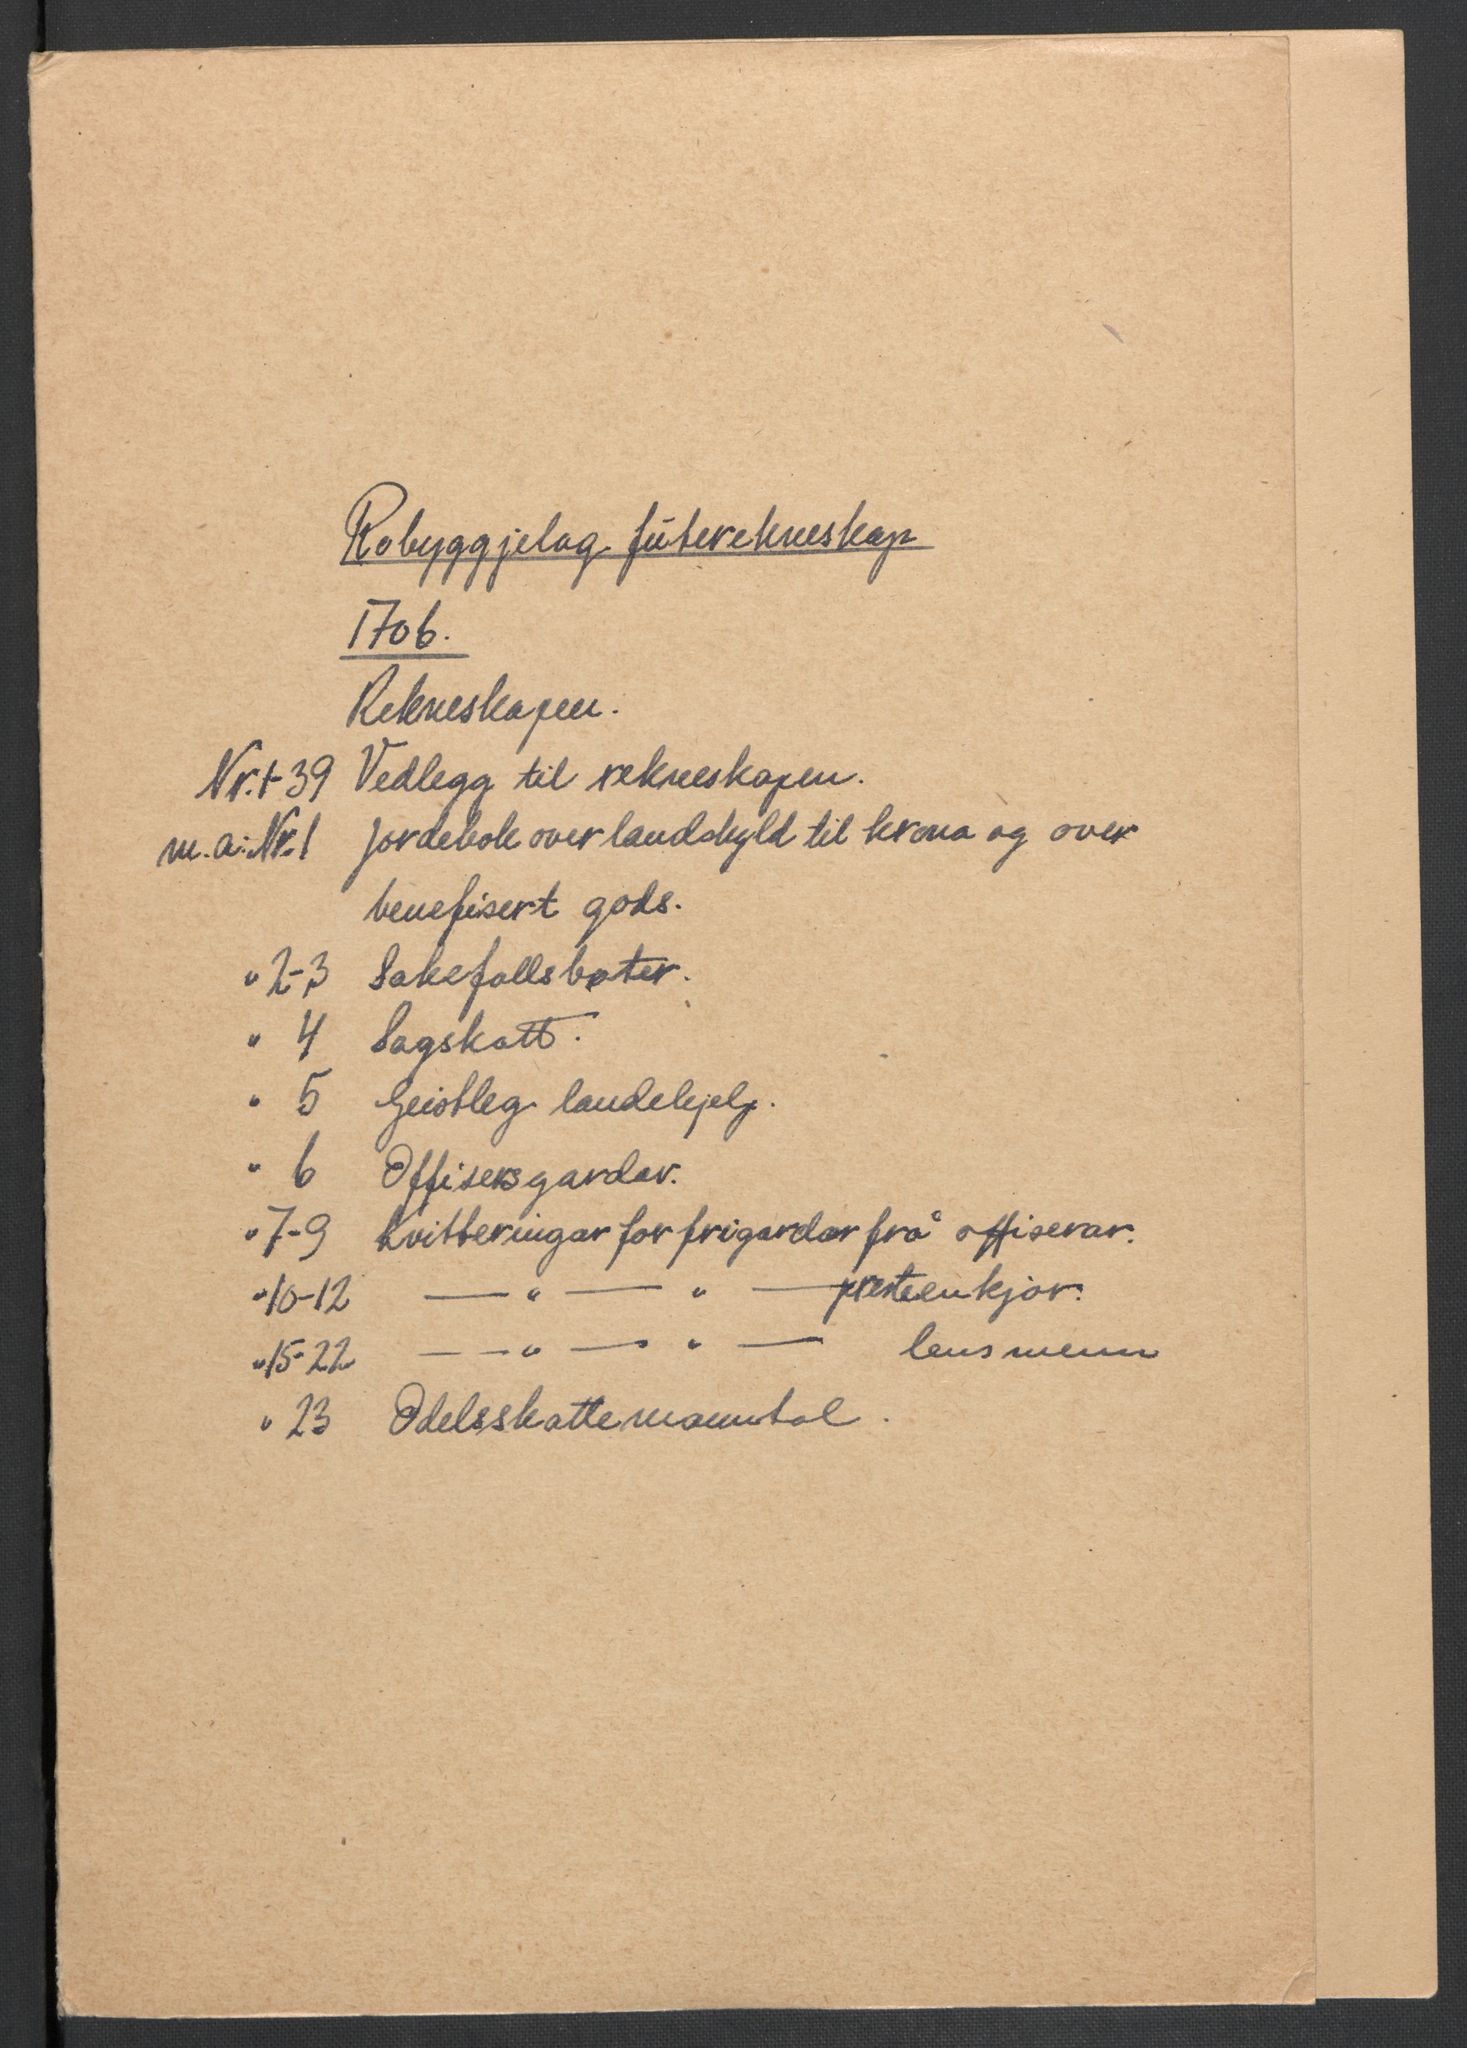 Robyggjelag futerekneskap
1706.
Rekneskapen.
Nr. 1-39 Vedlegg til rekneskapen.
m.a. Nr. 1 Jordebok over landskyld til krona og over
benefisert gods.
" 2-3 Sakefallsbøter.
" 4 Sagskatt.
" 5 Geistleg landehjelp.
" 6 Offisersgardar.
" 7-9 Kvitteringar for frigardar frå offiserar.
" 10-12 — " — " — presteenkjor.
" 15-22 — " — " — lensmenn
" 23 Odelsskattemanntal.